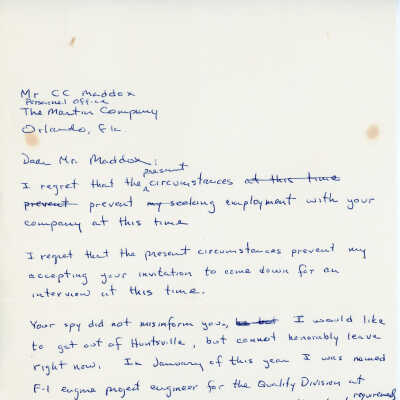 Mr CC Maddox
Personel Office
The Martin Company
Orlando, Fla.
Dear Mr. Maddox:
present
I regret that the circumstances at this time
prevent prevent my seeking employment with your
company at this time
I regret that the present circumstances prevent my
accepting your invitation to come down for an
interview at this time.
Your spy did not misinform you, I would like
to get out of Huntsville, but cannot honorably leave
right now. In January of this year I was named
F-1 engine project engineer for the Quality Division at
requirements